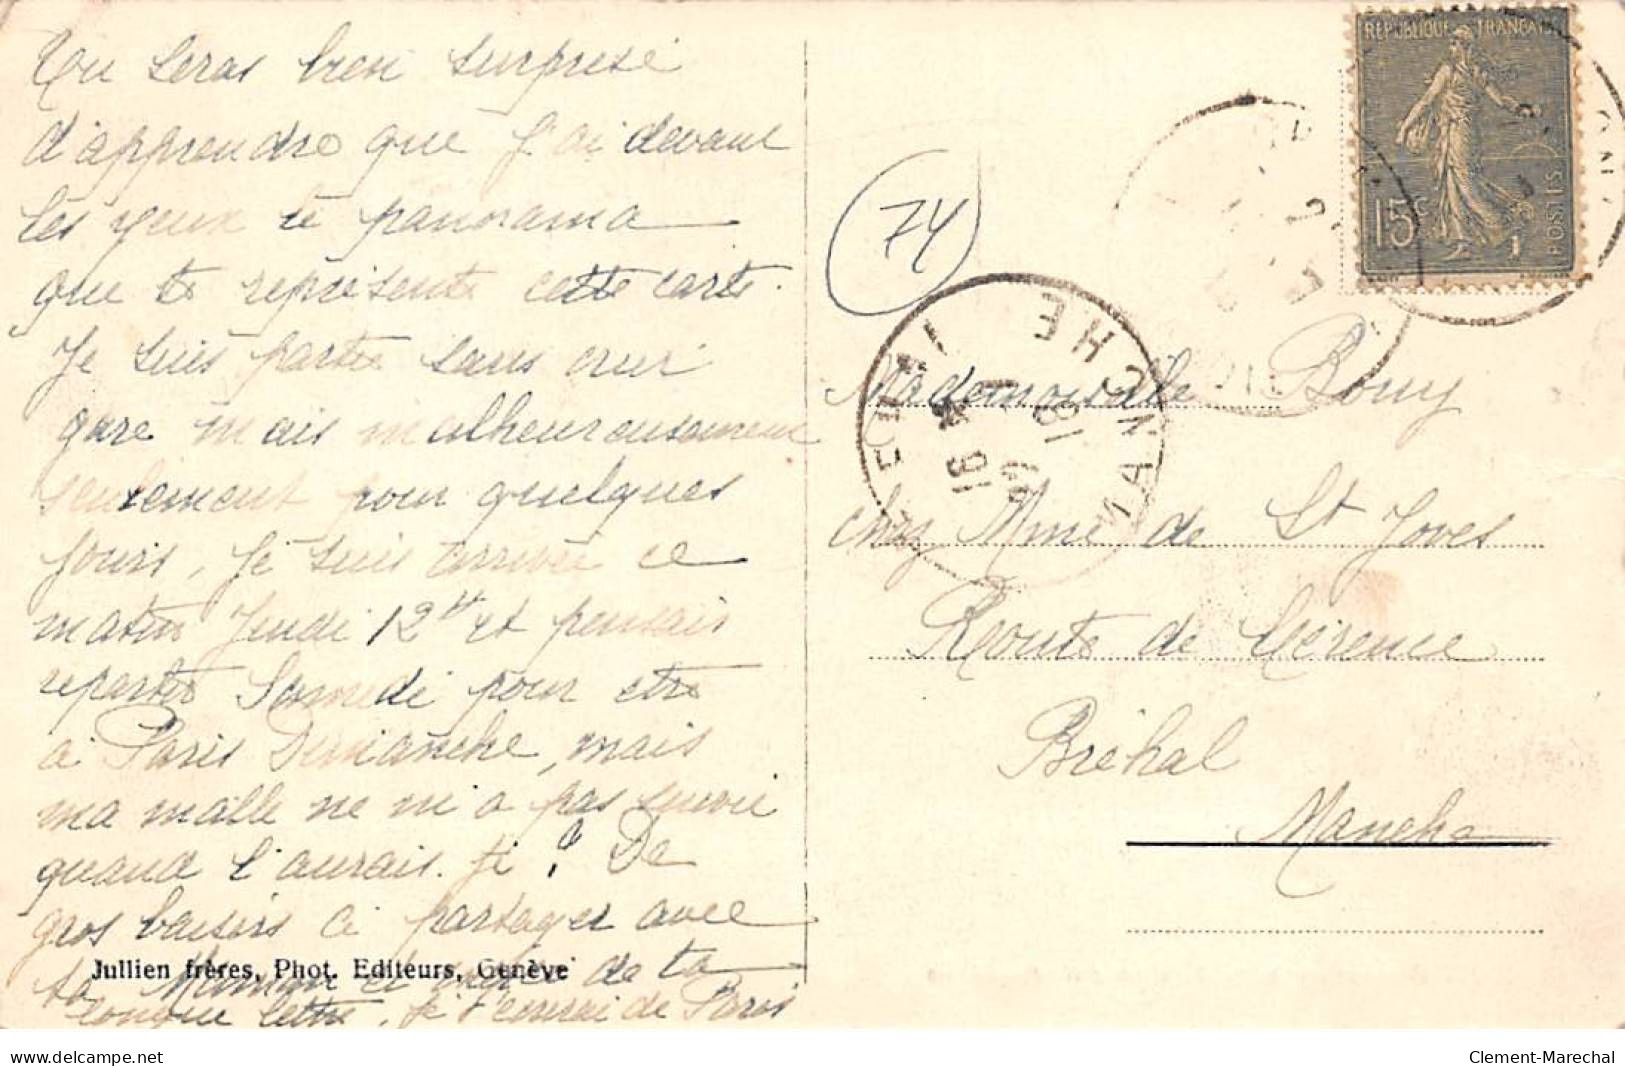 Tu seras bien surprise
d'apprendre que j'ai devant
les yeux le panorama
que te représente cette carte.
Je suis partie sans crier
gare mais malheureusement
seulement pour quelques
jours, je suis arrivée ce
matin Jeudi 12 et et pensais
repartir Samedi pour être
à Paris Dimanche, mais
ma malle ne m'a pas suivie
quand l'aurais-je ? De
gros baisers à partager avec
ta Maman et merci de ta
longue lettre, je t'écrirai de Paris
Jullien frères, Phot. Editeurs, Genève
74
REPUBLIQUE FRANÇAISE
15c
POSTES
MANCHE
16
18
Mademoiselle Bouy
chez Mme de St Joves
Route de Cérence
Bréhal
Manche
www.delcampe.net
Clement-Marechal